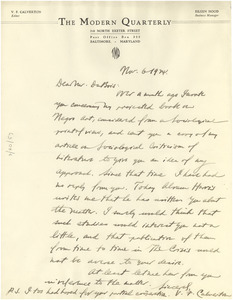 THE MODERN QUARTERLY
V. F. CALVERTON
Editor
HAIM HOOR
Business Manager
110 NORTH EXETER STREET
Post Office Box 252
BALTIMORE - MARYLAND
Nov. 6-1924
Dear Mr. DuBois:
Over a month ago I wrote
you concerning my projected book on
Negro Art, considered from a sociological
point of view, and sent you a copy of my
article on Sociological Criticism of
Literature to give you an idea of my
approach. Since that time I have had
no reply from you. Today Abram Harris
writes me that he has written you about
the matter. I surely would think that
such studies would interest you not a
little, and that publication of them
from time to time in The Crisis would
not be averse to your desire.
At least let me hear from you
in reference to the matter.
Sincerely,
V. F. Calverton
P.S. I too had hoped for your